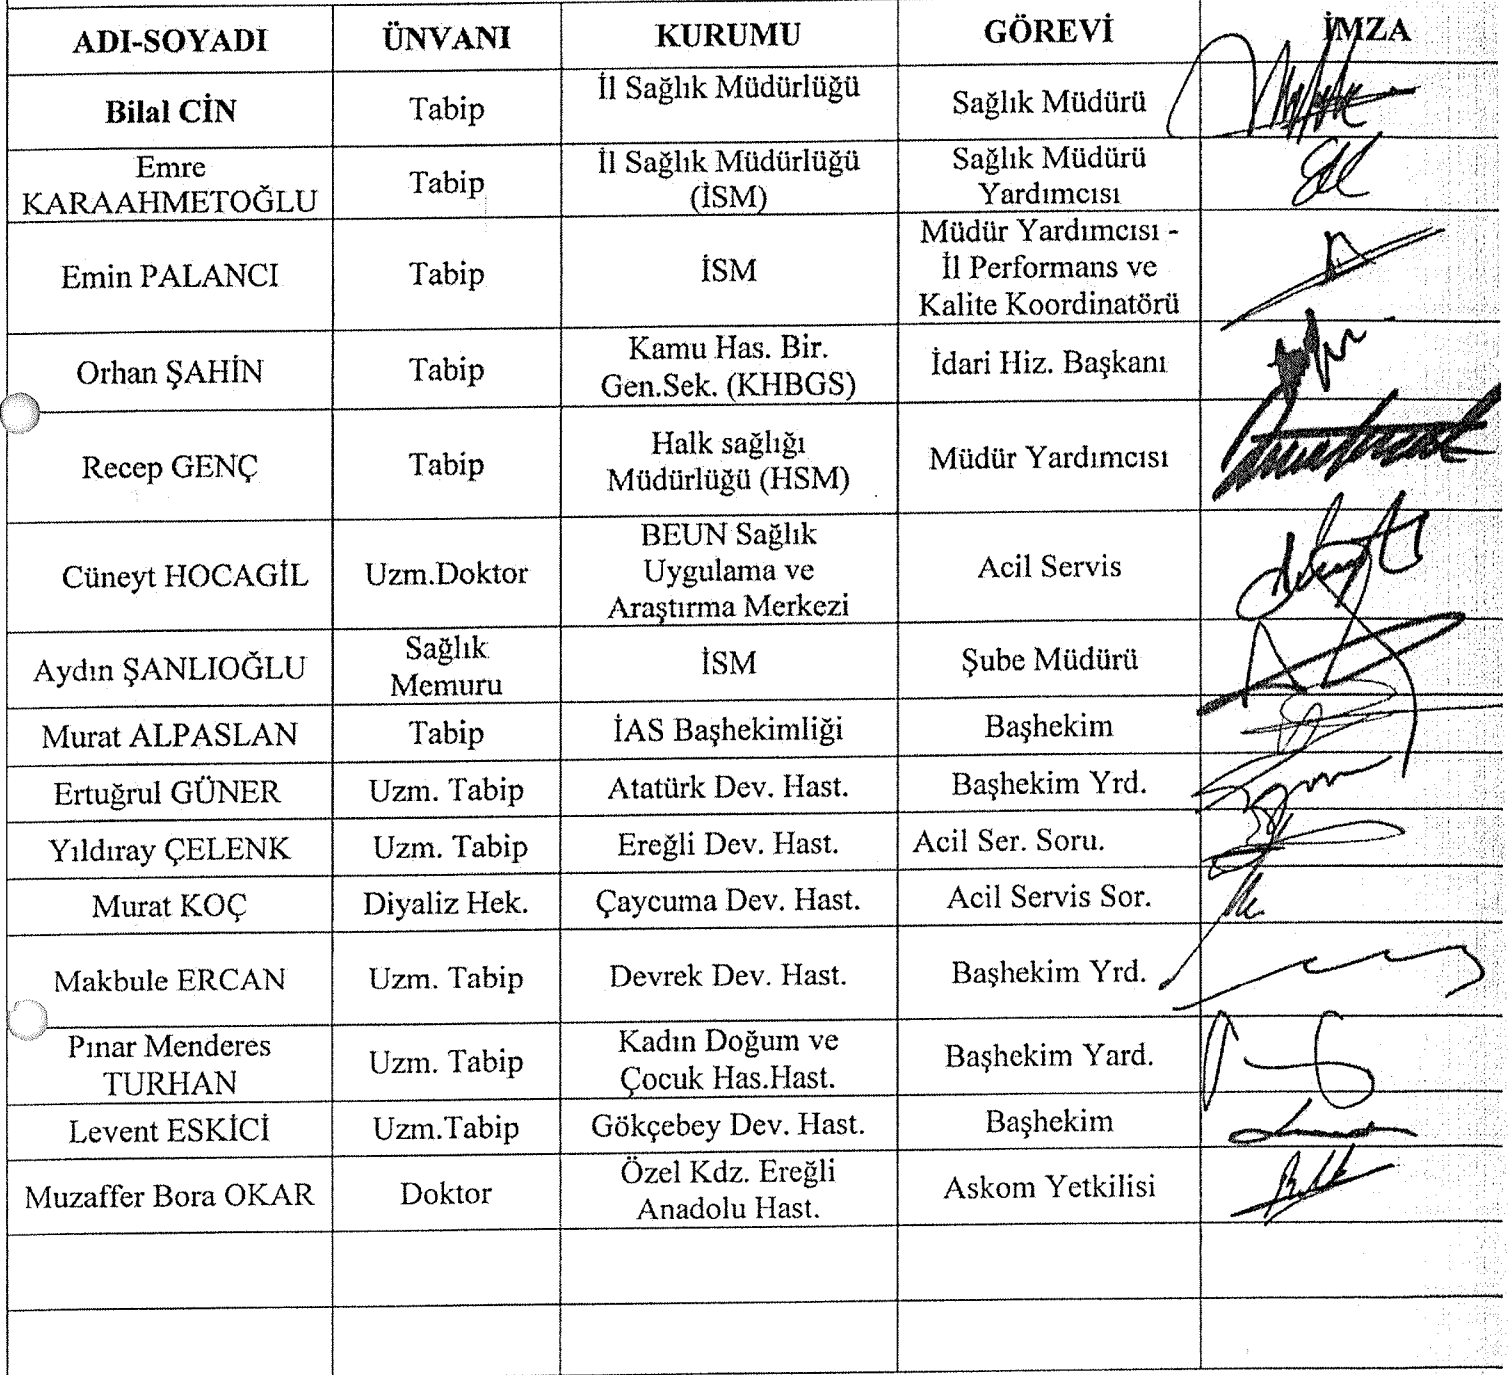 ADI-SOYADI ÜNVANI KURUMU GÖREVİ İMZA
Bilal CİN Tabip İl Sağlık Müdürlüğü Sağlık Müdürü
Emre
KARAAHMETOĞLU
Tabip
İl Sağlık Müdürlüğü
(İSM)
Sağlık Müdürü
Yardımcısı
Emin PALANCI Tabip İSM
Müdür Yardımcısı -
İl Performans ve
Kalite Koordinatörü
Orhan ŞAHİN Tabip
Kamu Has. Bir.
Gen.Sek. (KHBGS)
İdari Hiz. Başkanı
Recep GENÇ Tabip
Halk sağlığı
Müdürlüğü (HSM)
Müdür Yardımcısı
Cüneyt HOCAGİL Uzm.Doktor
BEUN Sağlık
Uygulama ve
Araştırma Merkezi
Acil Servis
Aydın ŞANLIOĞLU
Sağlık
Memuru
İSM Şube Müdürü
Murat ALPASLAN Tabip İAS Başhekimliği Başhekim
Ertuğrul GÜNER Uzm. Tabip Atatürk Dev. Hast. Başhekim Yrd.
Yıldıray ÇELENK Uzm. Tabip Ereğli Dev. Hast. Acil Ser. Soru.
Murat KOÇ Diyaliz Hek. Çaycuma Dev. Hast. Acil Servis Sor.
Makbule ERCAN Uzm. Tabip Devrek Dev. Hast. Başhekim Yrd.
Pınar Menderes
TURHAN
Uzm. Tabip
Kadın Doğum ve
Çocuk Has.Hast.
Başhekim Yard.
Levent ESKİCİ Uzm.Tabip Gökçebey Dev. Hast. Başhekim
Muzaffer Bora OKAR Doktor
Özel Kdz. Ereğli
Anadolu Hast.
Askom Yetkilisi